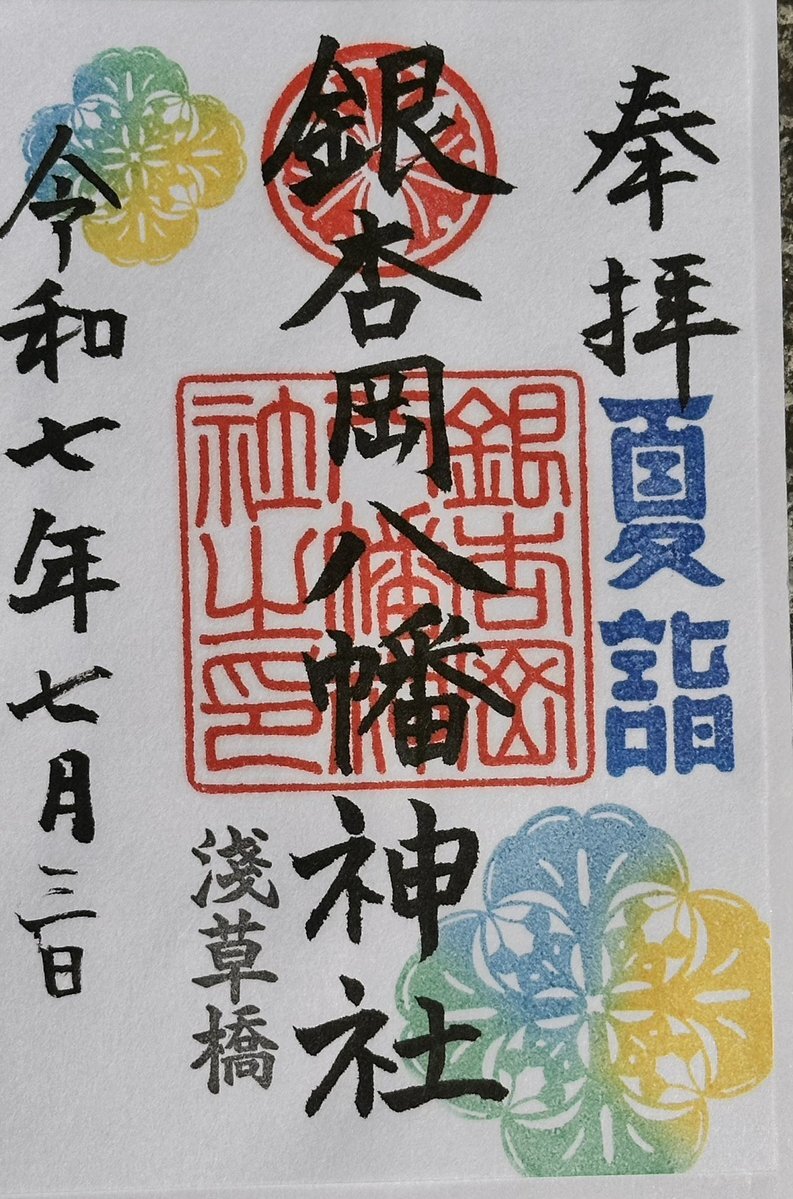 奉拝
夏詣
銀杏岡八幡神社
銀杏岡
八幡神
社之印
淺草橋
令和七年七月三日